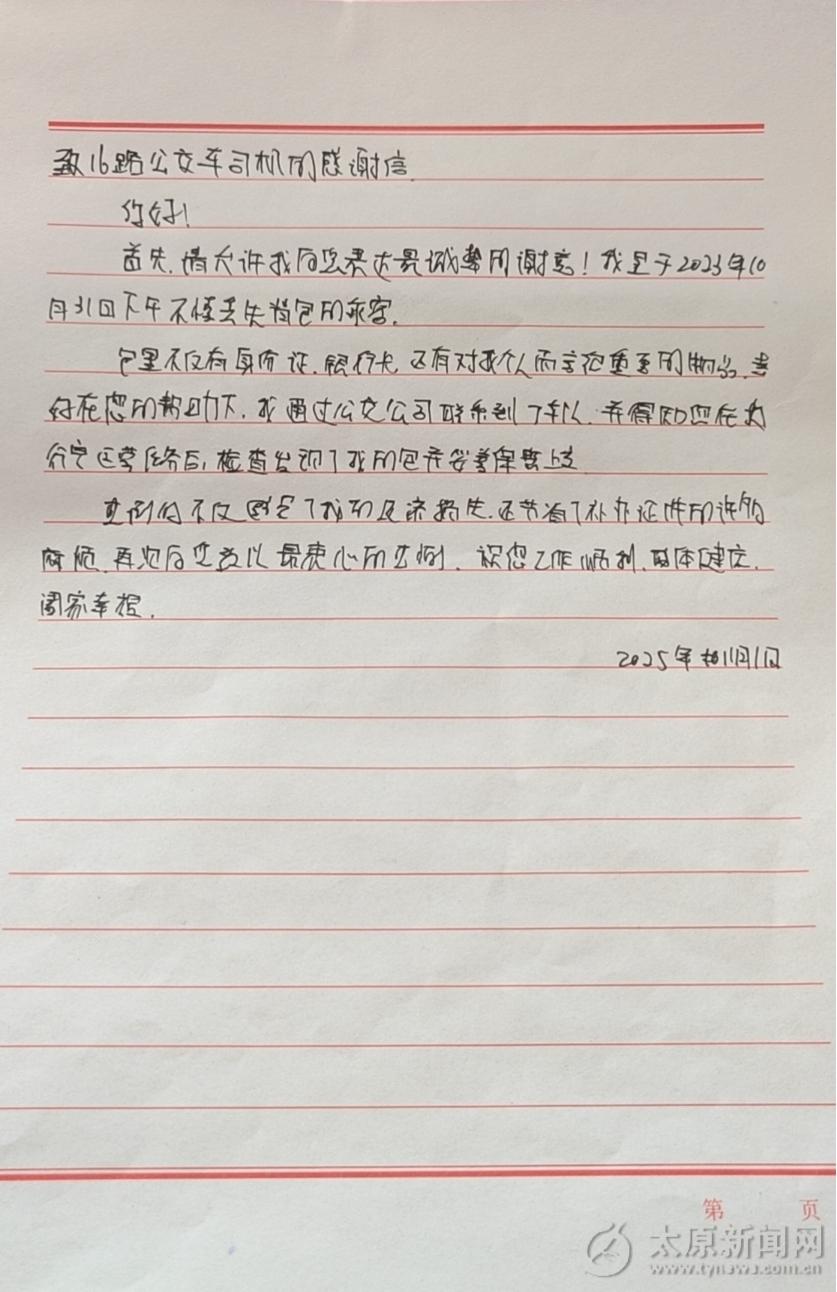 致16路公交车司机的感谢信
你好!
首先,请允许我向您表达最诚挚的谢意!我是于2023年10
月31日下午不慎丢失背包的乘客.
包里不仅有身份证.银行卡,还有对我个人而言很重要的物品,幸
好在您的帮助下,我通过公交公司联系到了车队,并得知您在执
行完运营任务后,检查发现了我的包并妥善保管上交
您的不仅避免了我的经济损失,还节省了补办证件的许多
麻烦,再次向您致以最衷心的感谢,祝您工作顺利,身体健康,
阖家幸福.
2025年11月1日
第 页
太原新闻网
www.tynews.com.cn